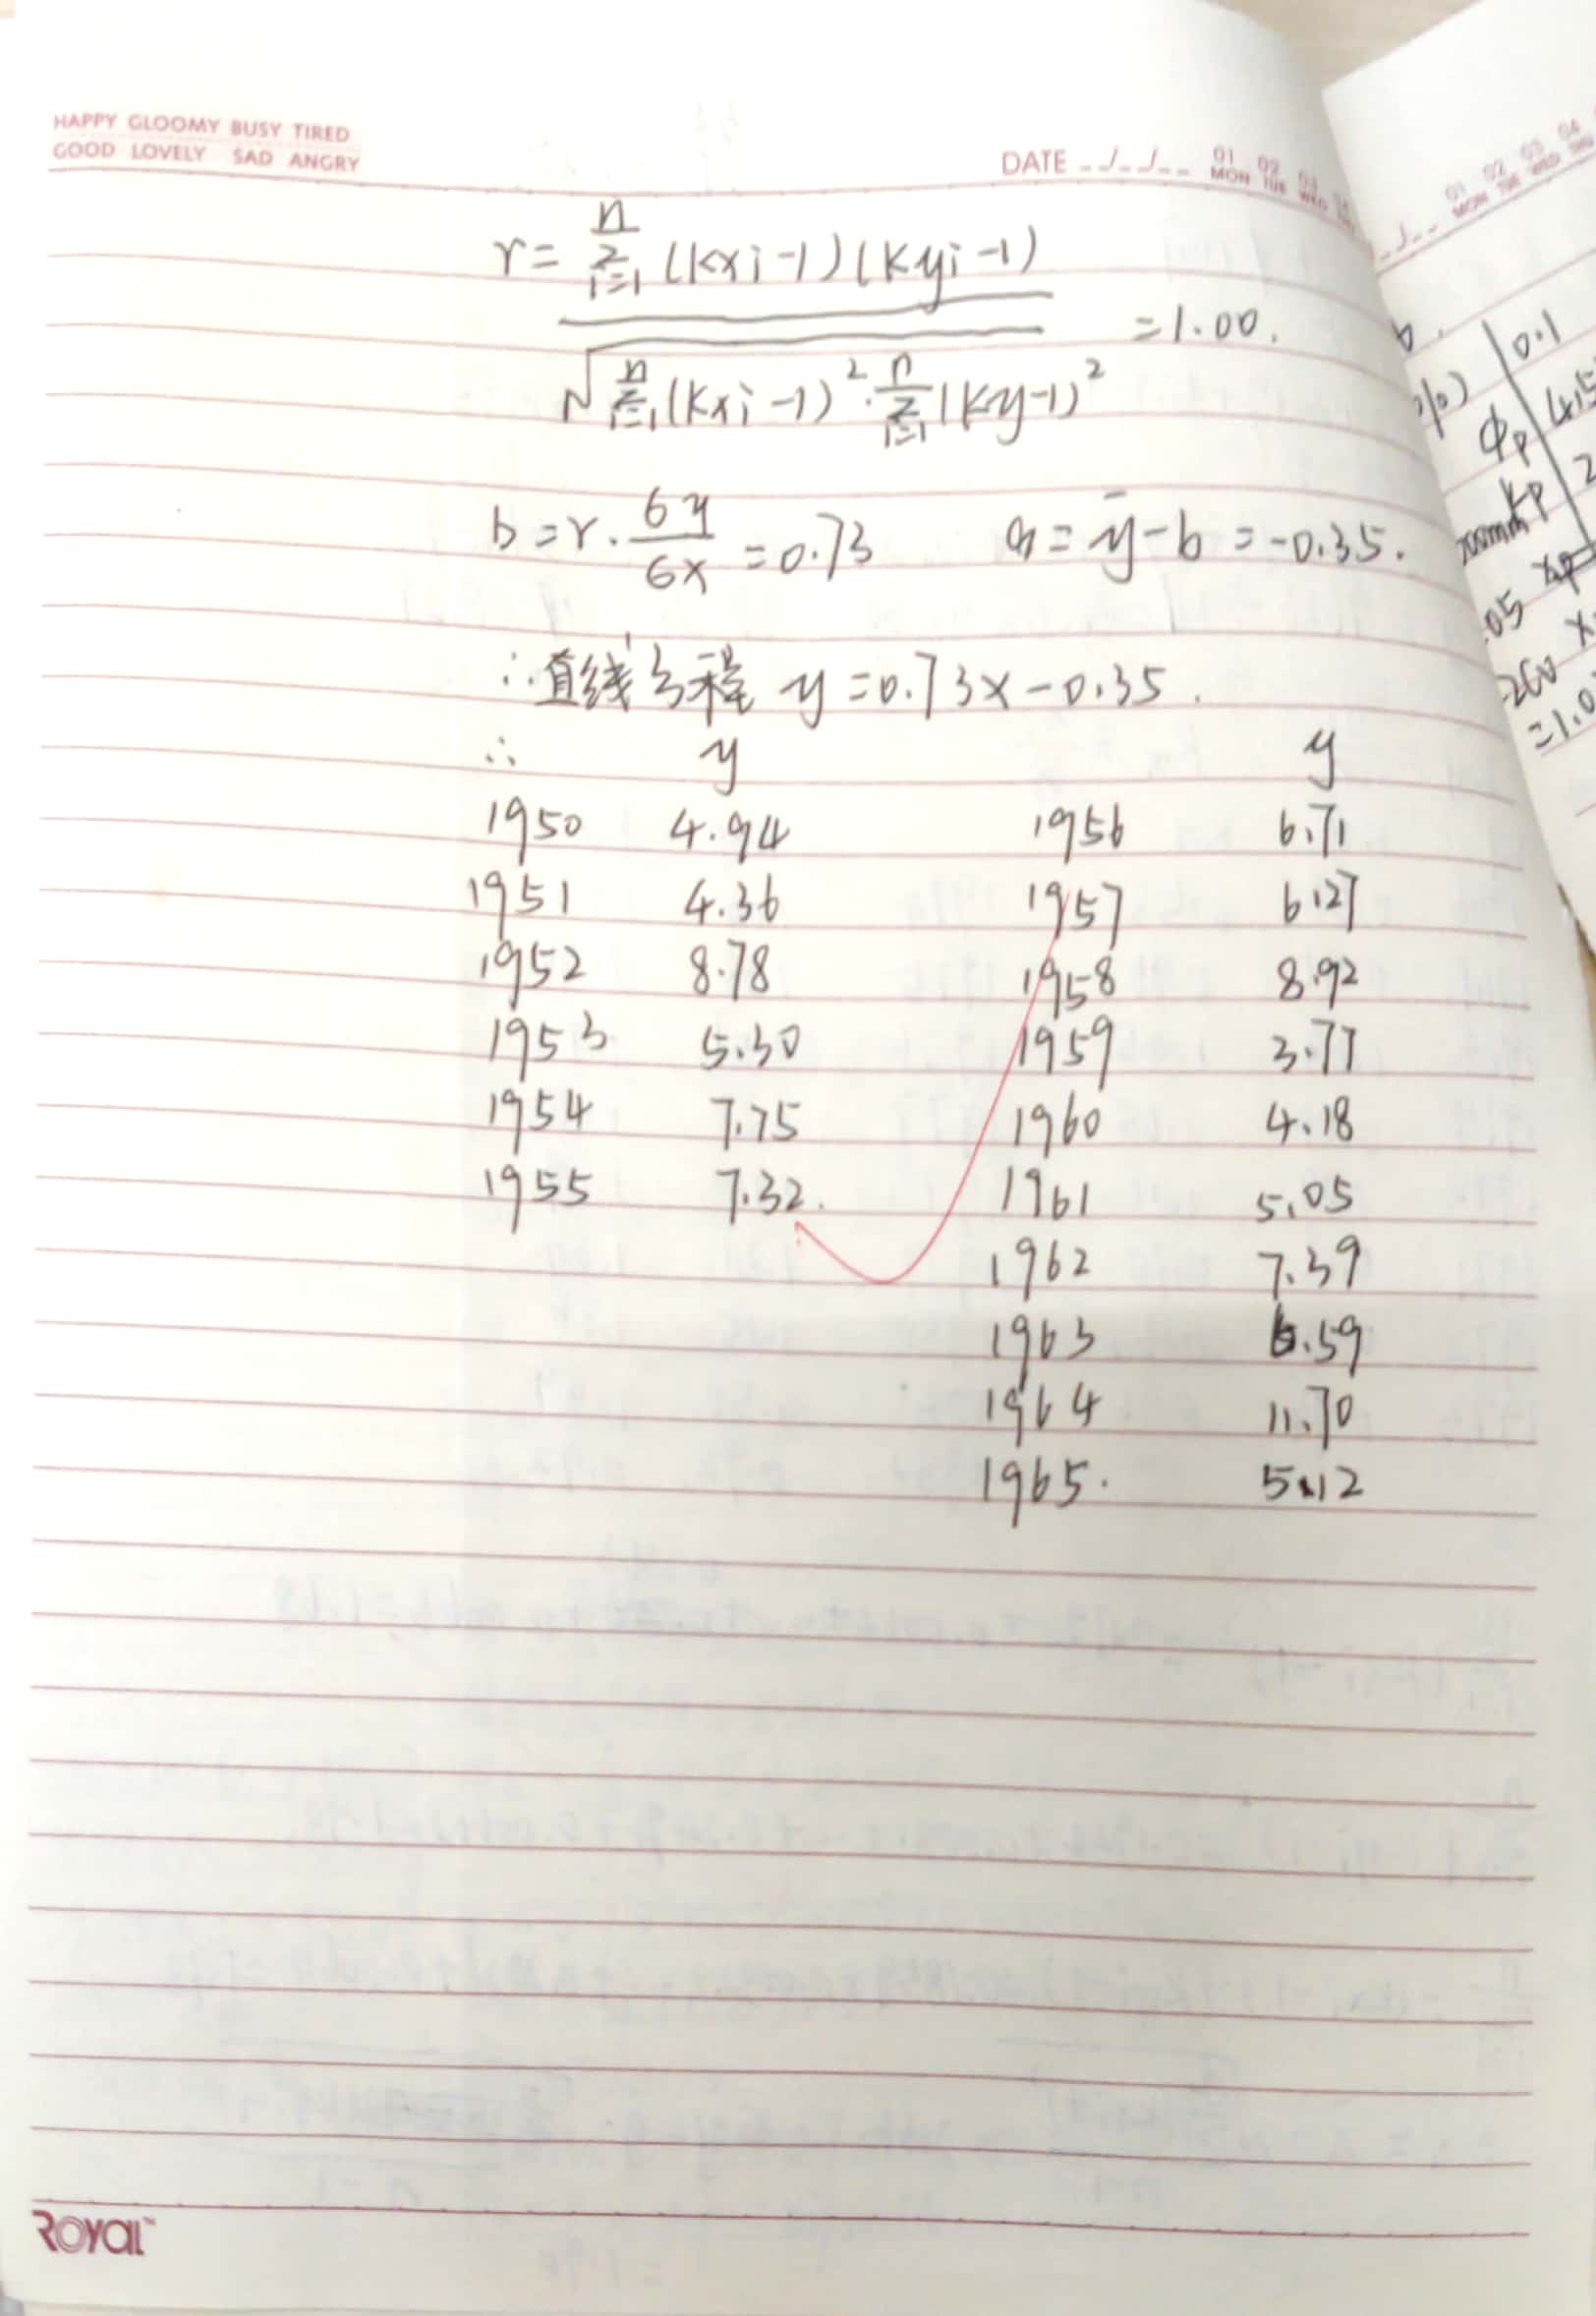 HAPPY GLOOMY BUSY TIRED
GOOD LOVELY SAD ANGRY
DATE _/_/__ 01 02 03
MON TUE WED
r = n Σ i=1 (Kxi-1)(Kyi-1)
√ n Σ i=1 (Kxi-1)² · n Σ i=1 (Ky-1)² =1.00.
b = r · 6y / 6x = 0.73 a = ȳ - b = -0.35.
∴ 直线方程 y = 0.73x - 0.35.
∴ y y
1950 4.94 1956 6.71
1951 4.36 1957 6.27
1952 8.78 1958 8.92
1953 5.30 1959 3.77
1954 7.75 1960 4.18
1955 7.32. 1961 5.05
1962 7.39
1963 6.59
1964 11.70
1965. 5.12
ROYAL™
01 02 03 04
MON TUE WED THU
0.1
Φp
Kp